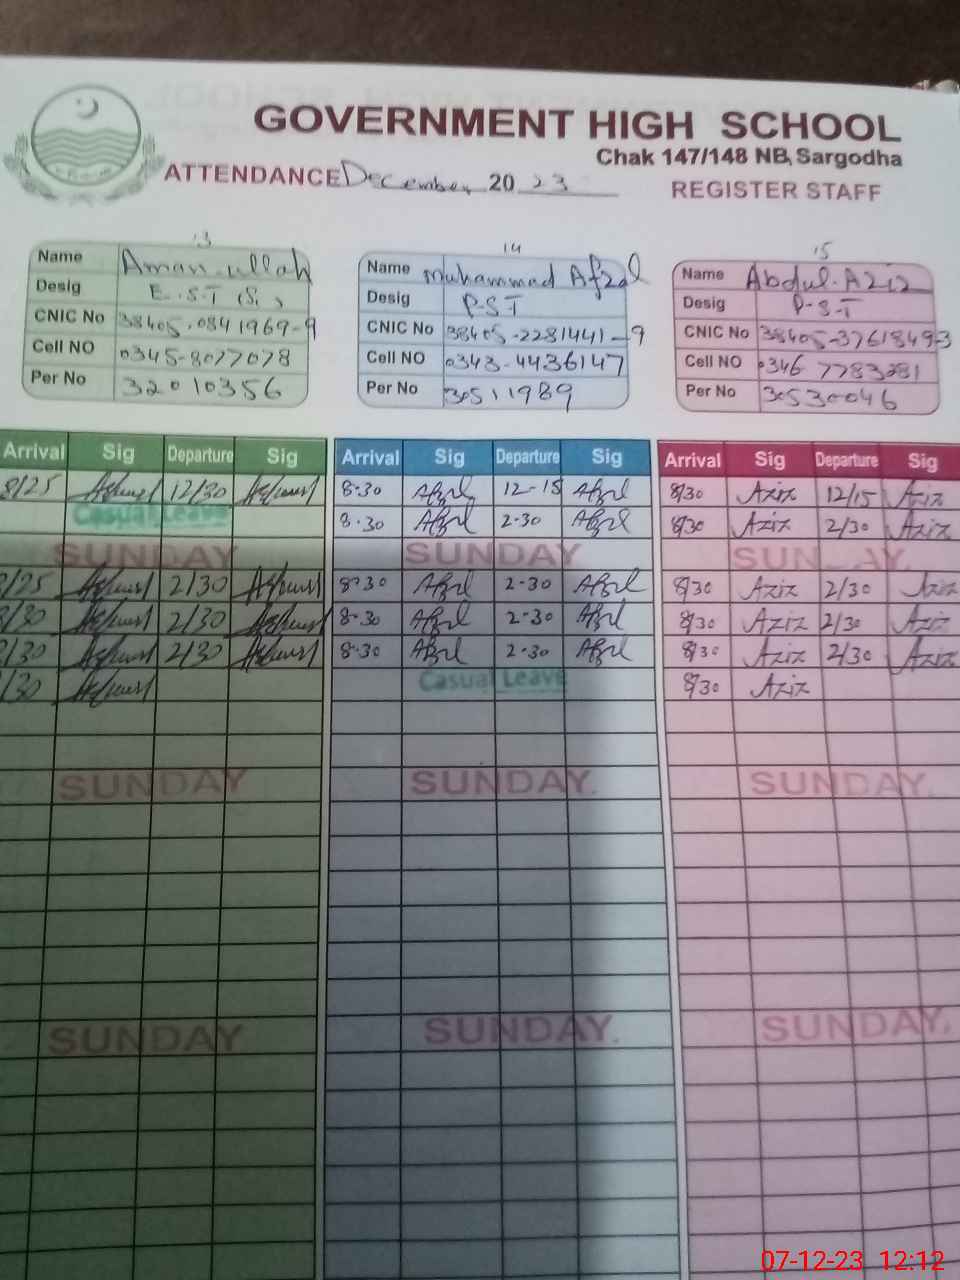 GOVERNMENT HIGH SCHOOL
Chak 147/148 NB, Sargodha
ATTENDANCE December 2023
REGISTER STAFF
13 14 15
Name Aman ullah
Desig E.S.T
CNIC No 38405-0841969-9
Cell NO 0345-8077078
Per No 32010356
Name Muhammad Afzal
Desig P-S-T
CNIC No 38405-2281441-9
Cell NO 0343-4436147
Per No 30511989
Name Abdul Aziz
Desig P-S-T
CNIC No 38405-3761849-3
Cell NO 0346 7783281
Per No 30530046
Arrival Sig Departure Sig Arrival Sig Departure Sig Arrival Sig Departure Sig
8/25 12/30 8-30 Afzal 12-15 Afzal 8/30 Aziz 12/15 Aziz
Casual Leave 8-30 Afzal 2-30 Afzal 8/30 Aziz 2/30 Aziz
SUNDAY SUNDAY SUNDAY
8/25 2/30 8-30 Afzal 2-30 Afzal 8/30 Aziz 2/30 Aziz
8/30 2/30 8-30 Afzal 2-30 Afzal 8/30 Aziz 2/30 Aziz
8/30 2/30 8-30 Afzal 2-30 Afzal 8/30 Aziz 2/30 Aziz
/30 Casual Leave 8/30 Aziz
SUNDAY SUNDAY. SUNDAY.
SUNDAY SUNDAY. SUNDAY.
07-12-23 12:12